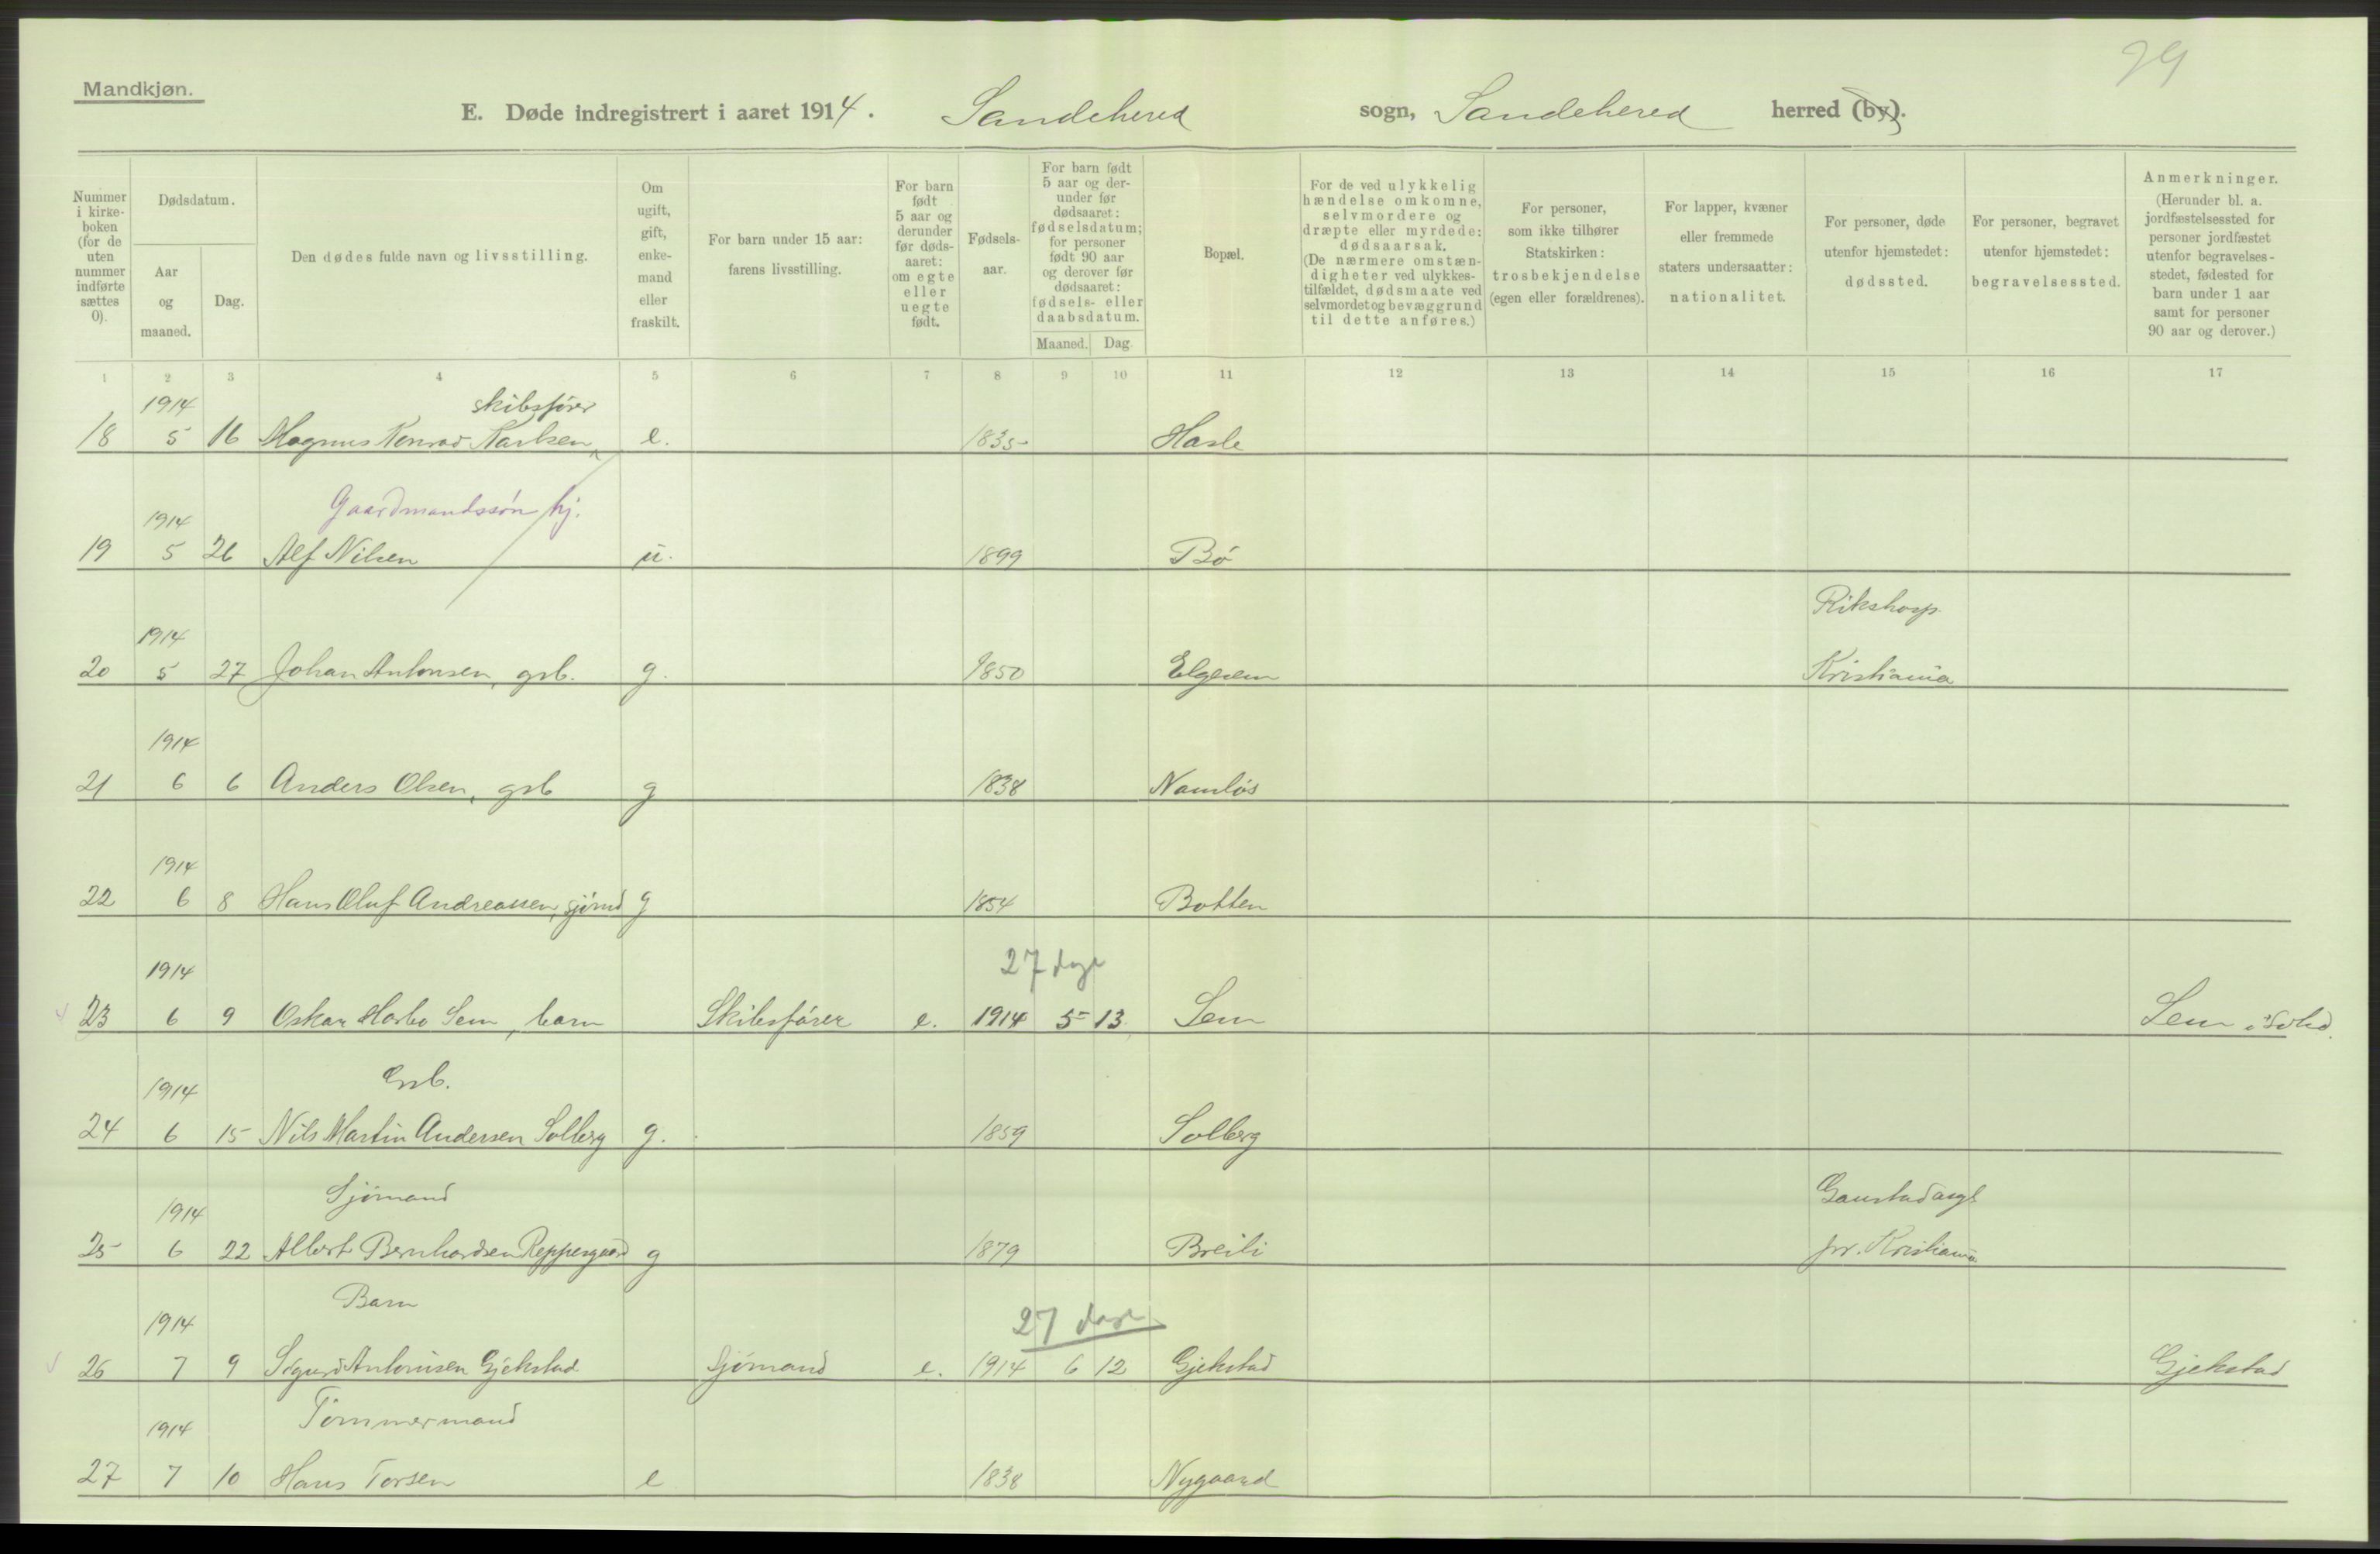 29
Mandkjøn.
E. Døde indregistrert i aaret 1914. Sandehered sogn, Sandehered herred (by).
Nummer i kirke-boken (for de uten nummer indførte sættes 0).
Dødsdatum.
Aar og maaned.
Dag.
Den dødes fulde navn og livsstilling.
Om ugift, gift, enke-mand eller fraskilt.
For barn under 15 aar: farens livsstilling.
For barn født 5 aar og derunder før døds-aaret: om egte eller uegte født.
Fødsels-aar.
For barn født 5 aar og der-under før dødsaaret: fødselsdatum; for personer født 90 aar og derover før dødsaaret: fødsels- eller daabsdatum.
Maaned. Dag.
Bopæl.
For de ved ulykkelig hændelse omkomne, selvmordere og dræpte eller myrdede: dødsaarsak. (De nærmere omstæn-digheter ved ulykkes-tilfældet, dødsmaate ved selvmordet og bevæggrund til dette anføres.)
For personer, som ikke tilhører Statskirken: trosbekjendelse (egen eller forældrenes).
For lapper, kvæner eller fremmede staters undersaatter: nationalitet.
For personer, døde utenfor hjemstedet: dødssted.
For personer, begravet utenfor hjemstedet: begravelsessted.
Anmerkninger. (Herunder bl. a. jordfæstelsessted for personer jordfæstet utenfor begravelses-stedet, fødested for barn under 1 aar samt for personer 90 aar og derover.)
1 2 3 4 5 6 7 8 9 10 11 12 13 14 15 16 17
1914 skibsfører
18 5 16 Magnus Konrad Karlsen e. 1835 Hasle
Gaardmandssøn hj.
1914
19 5 26 Alf Nilsen u. 1899 Bø
1914 Rikshosp.
20 5 27 Johan Antonsen, grb. g. 1850 Elgesem Kristiania
1914
21 6 6 Anders Olsen, grb g 1838 Namløs
1914
22 6 8 Hans Oluf Andreassen, sjømd g 1854 Botten
1914 27 dage
23 6 9 Oskar Harbo Sem, barn Skibsfører e. 1914 5 13 Sem Sem i Sehd.
1914 Grb.
24 6 15 Nils Martin Andersen Solberg g. 1859 Solberg
Sjømand Gaustad asyl
1914
25 6 22 Albert Bernhardsen Reppesgaard g 1879 Breili pr. Kristiania
Barn
1914 27 dage
26 7 9 Sigurd Antonisen Gjekstad Sjømand e. 1914 6 12 Gjekstad Gjekstad
1914 Tømmermand
27 7 10 Hans Torsen e 1838 Nygaard